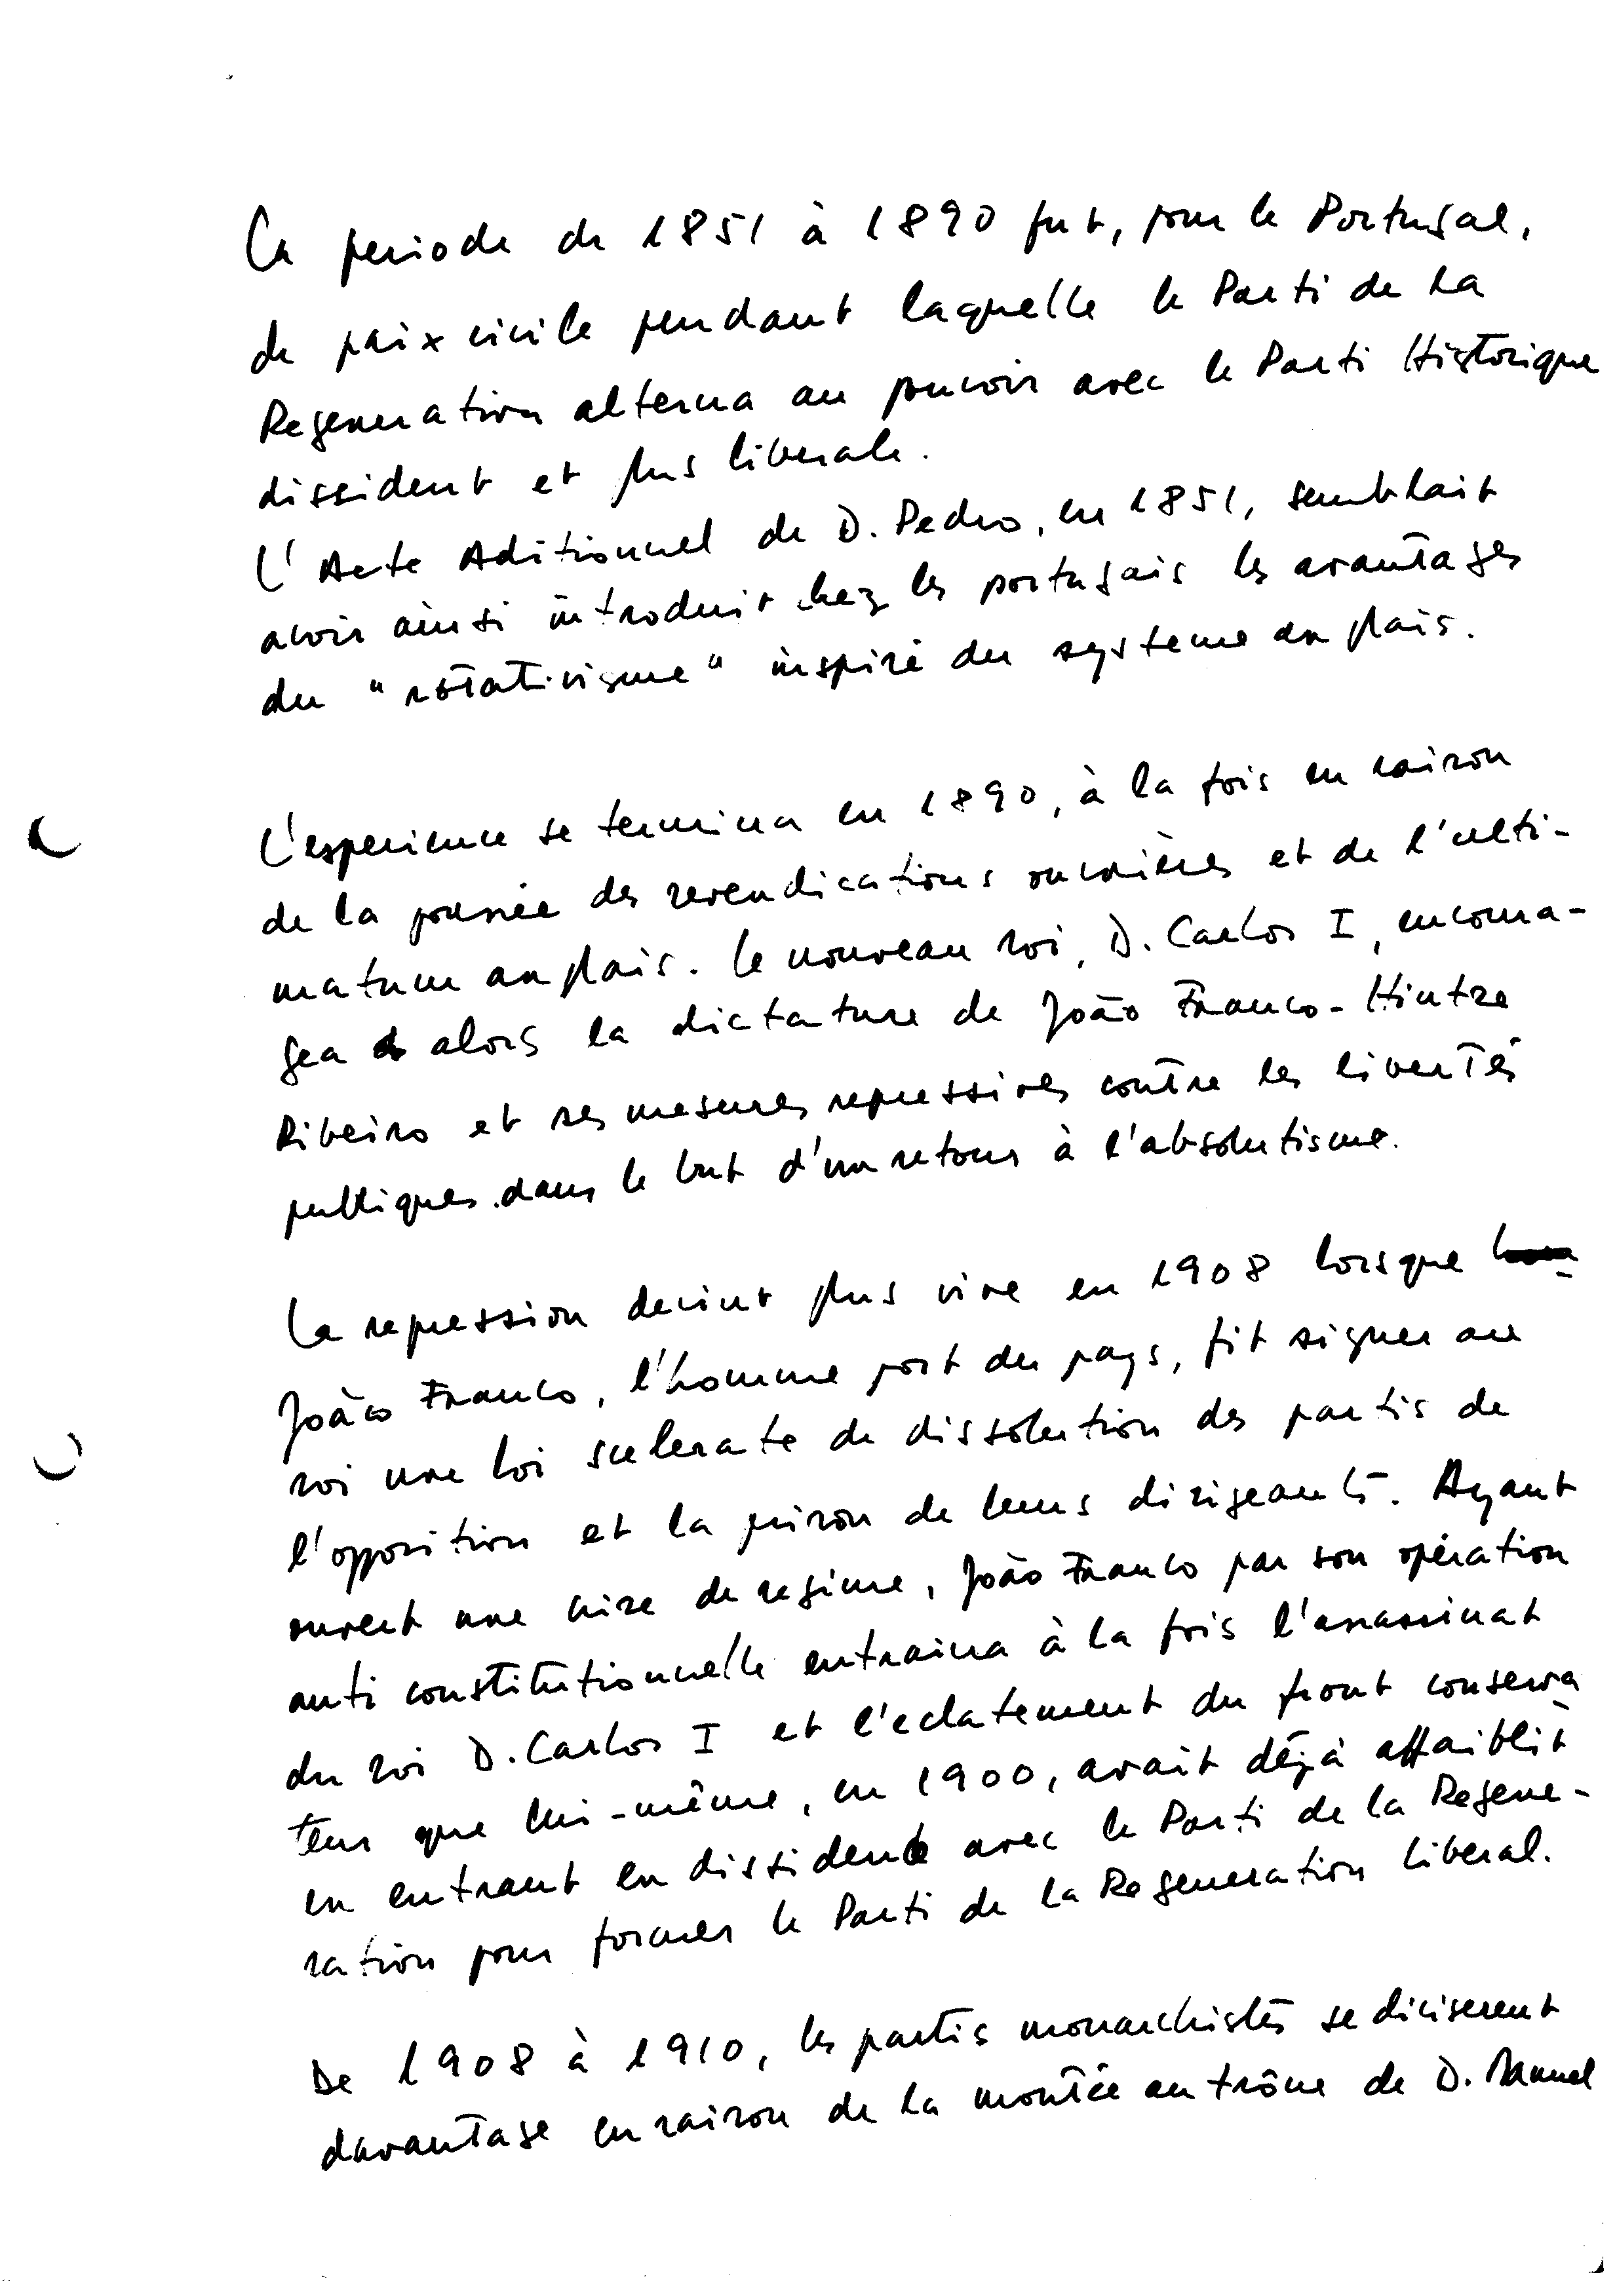 La periode de 1851 à 1890 fut, pour le Portugal,
de paix civile pendant laquelle le Parti de la
Regeneration alterna au pouvoir avec le Parti Historique
dissident et plus liberale.
L'Acte Aditionnel de D. Pedro, en 1851, semblait
avoir ainsi introduit chez les portugais les avantages
du "rotativisme" inspiré du systeme anglais.
L'esperience se termina en 1890, à la fois en raison
de la poussée des revendications ouvrières et de l'ulti-
matum anglais. Le nouveau roi, D. Carlos I, encoura-
gea alors la dictature de João Franco-Hintze
Ribeiro et ses mesures repressives contre les libertés
publiques dans le but d'un retour à l'absolutisme.
La repression devint plus vive en 1908 lorsque
João Franco, l'homme fort du pays, fit signer au
roi une loi scelerate de dissolution des partis de
l'opposition et la prison de leurs dirigeants. Ayant
ouvert une crise de regime, João Franco par son opération
anti constitutionnelle entraina à la fois l'assassinat
du roi D. Carlos I et l'eclatement du front conserva
teur que lui-même, en 1900, avait déjà affaiblit
en entrant en dissidence avec le Parti de la Regene-
ration pour former le Parti de la Regeneration Liberal.
De 1908 à 1910, les partis monarchistes se diviserent
davantage en raison de la montée au trône de D. Manuel